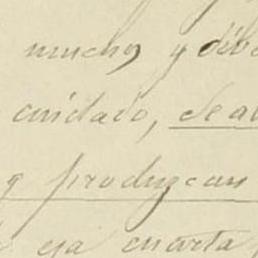 mucho, y deb
cuidado, de a
y produzcan
esa cuarta